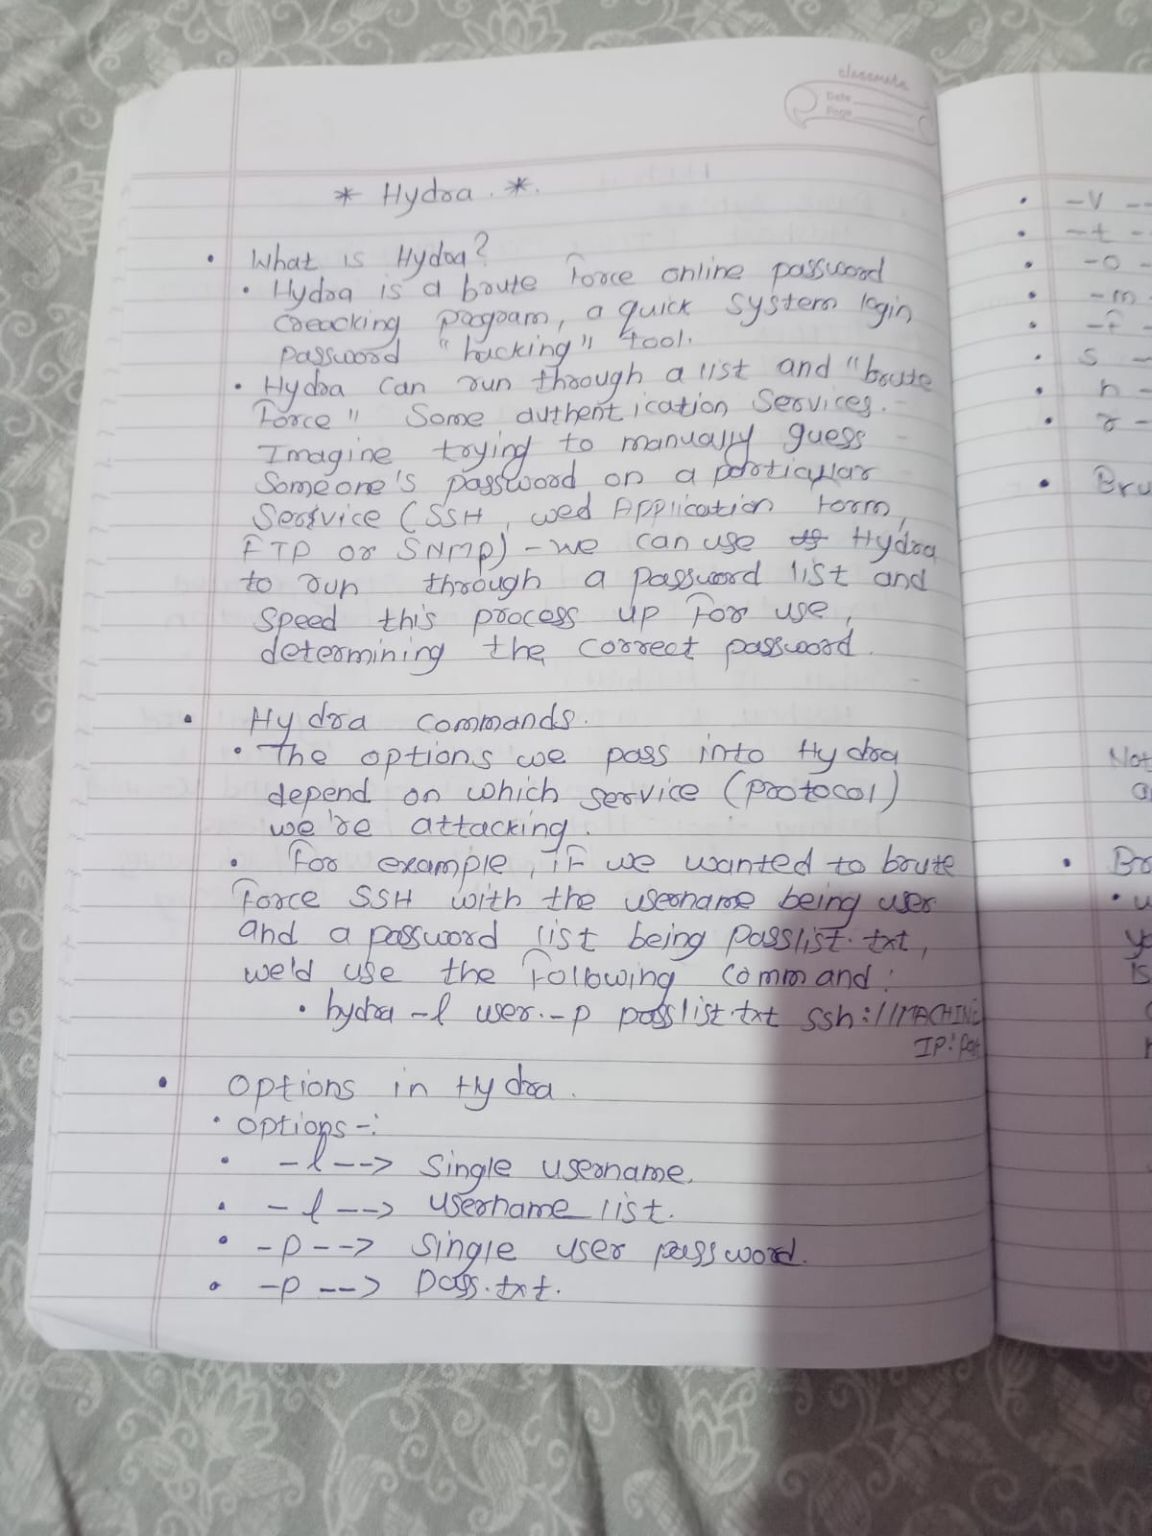 classmate
Date
Page
* Hydra. *.
• What is Hydra?
• Hydra is a brute force online password
creacking program, a quick system login
password "hacking" tool.
• Hydra can run through a list and "brute
force" some authentication services.
Imagine trying to manually guess
someone's password on a particular
service (SSH, wed Application form,
FTP or SNMP) - we can use Hydra
to run through a password list and
speed this process up for use,
determining the correct password.
• Hydra commands.
• The options we pass into Hydra
depend on which service (protocol)
we're attacking.
• for example, if we wanted to brute
force SSH with the username being user
and a password list being passlist.txt,
we'd use the following command:
• hydra -l user.-p passlist.txt ssh://MACHINE
IP:
• options in Hydra.
• options -:
• -l --> single username.
• -l --> username list.
• -p --> single user password.
• -p --> pass.txt.
• -v --
• -t -
• -o -
• -m -
• -f -
• s -
• h -
• r -
• Bru
Not
a
• Br
• u
yo
is